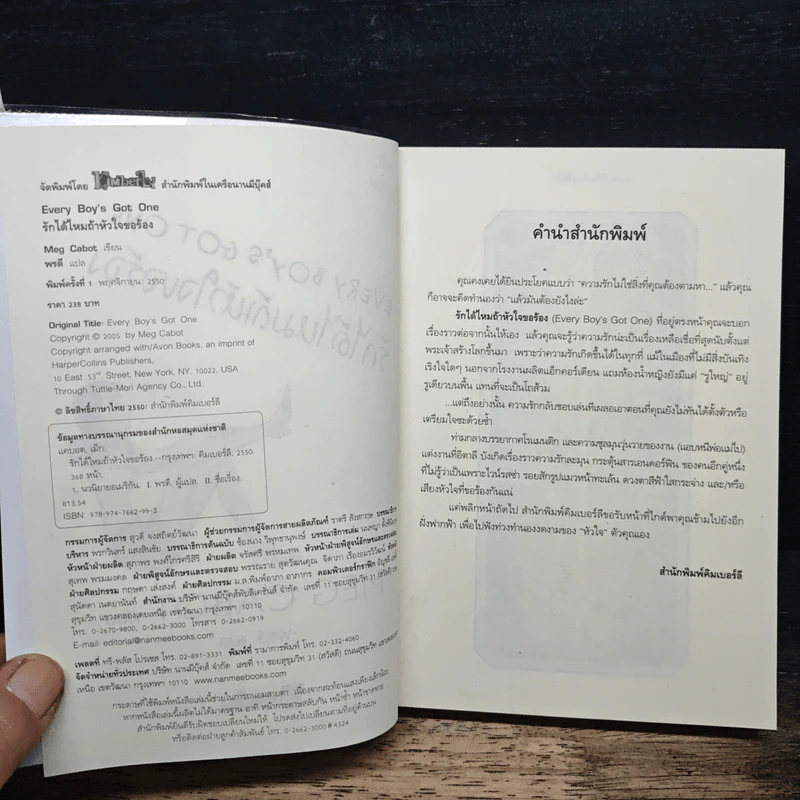 จัดพิมพ์โดย Kimberly สำนักพิมพ์ในเครือนานมีบุ๊คส์
Every Boy's Got One
รักได้ไหมถ้าหัวใจขอร้อง
Meg Cabot เขียน
พรดี แปล
พิมพ์ครั้งที่ 1 พฤศจิกายน 2550
ราคา 238 บาท
Original Title: Every Boy's Got One
Copyright © 2005 by Meg Cabot
Copyright arranged with/Avon Books, an imprint of
HarperCollins Publishers,
10 East 53rd Street, New York, NY. 10022, USA
Through Tuttle-Mori Agency Co., Ltd.
© ลิขสิทธิ์ภาษาไทย 2550: สำนักพิมพ์คิมเบอร์ลี
ข้อมูลทางบรรณานุกรมของสำนักหอสมุดแห่งชาติ
แคบอต, เม็ก.
รักได้ไหมถ้าหัวใจขอร้อง.--กรุงเทพฯ: คิมเบอร์ลี, 2550.
368 หน้า.
1. นวนิยายอเมริกัน. I. พรดี, ผู้แปล. II. ชื่อเรื่อง.
813.54
ISBN 978-974-7662-99-3
กรรมการผู้จัดการ สุวดี จงสถิตย์วัฒนา ผู้ช่วยกรรมการผู้จัดการสายผลิตภัณฑ์ ราตรี
บริหาร พรกวินทร์ แสงสินชัย บรรณาธิการต้นฉบับ ช้องนาง วิพุธานุพงษ์ บรรณาธิการเล่ม
หัวหน้าฝ่ายผลิต สุภาพร พงศ์ไกรศรีสิริ ฝ่ายผลิต จรัสศรี พรหมเทพ หัวหน้าฝ่ายพิสูจน์อักษรและตรวจสอบ
สุเทพ พรมมงคล ฝ่ายพิสูจน์อักษรและตรวจสอบ พรรณราย สุดวัฒนคุณ, จิดาภา
ฝ่ายศิลปกรรม กฤษดา เส่งสงค์ ฝ่ายศิลปกรรม ม.ล.พิมพ์อาภา อาภากร คอมพิวเตอร์กราฟิก
สุนัดดา เนตยานันท์ สำนักงาน บริษัท นานมีบุ๊คส์พับลิเคชันส์ จำกัด เลขที่ 11 ซอยสุขุมวิท 31 (สวัสดี)
สุขุมวิท แขวงคลองเตยเหนือ เขตวัฒนา กรุงเทพฯ 10110
โทร. 0-2670-9800, 0-2662-3000 โทรสาร 0-2662-0919
E-mail: editorial@nanmeebooks.com
เพลตที่ ทรี-พลัส โปรเซส โทร. 02-891-3331 พิมพ์ที่ รามาการพิมพ์ โทร. 02-332-4060
จัดจำหน่ายทั่วประเทศ บริษัท นานมีบุ๊คส์ จำกัด เลขที่ 11 ซอยสุขุมวิท 31 (สวัสดี) ถนนสุขุมวิท
เหนือ เขตวัฒนา กรุงเทพฯ 10110 www.nanmeebooks.com
กระดาษที่ใช้พิมพ์หนังสือเล่มนี้ช่วยในการถนอมสายตา เนื่องจากสะท้อนแสงเพียงเล็กน้อย
หากหนังสือเล่มนี้ผลิตไม่ได้มาตรฐาน อาทิ หน้ากระดาษสลับกัน หน้าซ้ำ หน้าขาดหาย
สำนักพิมพ์ยินดีรับผิดชอบเปลี่ยนใหม่ให้ โปรดส่งไปเปลี่ยนตามที่อยู่ด้านบน
หรือติดต่อฝ่ายลูกค้าสัมพันธ์ โทร. 0-2662-3000 # 4324
คำนำสำนักพิมพ์
คุณคงเคยได้ยินประโยคแบบว่า "ความรักไม่ใช่สิ่งที่คุณต้องตามหา..." แล้วคุณ
ก็อาจจะคิดทำนองว่า "แล้วมันต้องยังไงล่ะ"
รักได้ไหมถ้าหัวใจขอร้อง (Every Boy's Got One) ที่อยู่ตรงหน้าคุณจะบอก
เรื่องราวต่อจากนั้นให้เอง แล้วคุณจะรู้ว่าความรักน่ะเป็นเรื่องเหลือเชื่อที่สุดนับตั้งแต่
พระเจ้าสร้างโลกขึ้นมา เพราะว่าความรักเกิดขึ้นได้ในทุกที่ แม้ในเมืองที่ไม่มีสิ่งบันเทิง
เริงใจใดๆ นอกจากโรงงานผลิตแอ็กคอร์เดียน แถมห้องน้ำหญิงยังมีแค่ "รูใหญ่" อยู่
รูเดียวบนพื้น แทนที่จะเป็นโถส้วม
...แต่ถึงอย่างนั้น ความรักกลับชอบเล่นทีเผลอเอาตอนที่คุณยังไม่ทันได้ตั้งตัวหรือ
เตรียมใจซะด้วยซ้ำ
ท่ามกลางบรรยากาศโรแมนติก และความชุลมุนวุ่นวายของงาน (แอบหนีพ่อแม่ไป)
แต่งงานที่อิตาลี บังเกิดเรื่องราวความรักละมุน กระตุ้นสารเอนดอร์ฟิน ของคนอีกคู่หนึ่ง
ที่ไม่รู้ว่าเป็นเพราะไวน์รสซ่า รอยสักรูปแมวหน้าทะเล้น ดวงตาสีฟ้าใสกระจ่าง และ/หรือ
เสียงหัวใจที่ขอร้องกันแน่
แค่พลิกหน้าถัดไป สำนักพิมพ์คิมเบอร์ลีขอรับหน้าที่ไกด์พาคุณข้ามไปยังอีก
ฝั่งฟากฟ้า เพื่อไปฟังท่วงทำนองงดงามของ "หัวใจ" ตัวคุณเอง
สำนักพิมพ์คิมเบอร์ลี